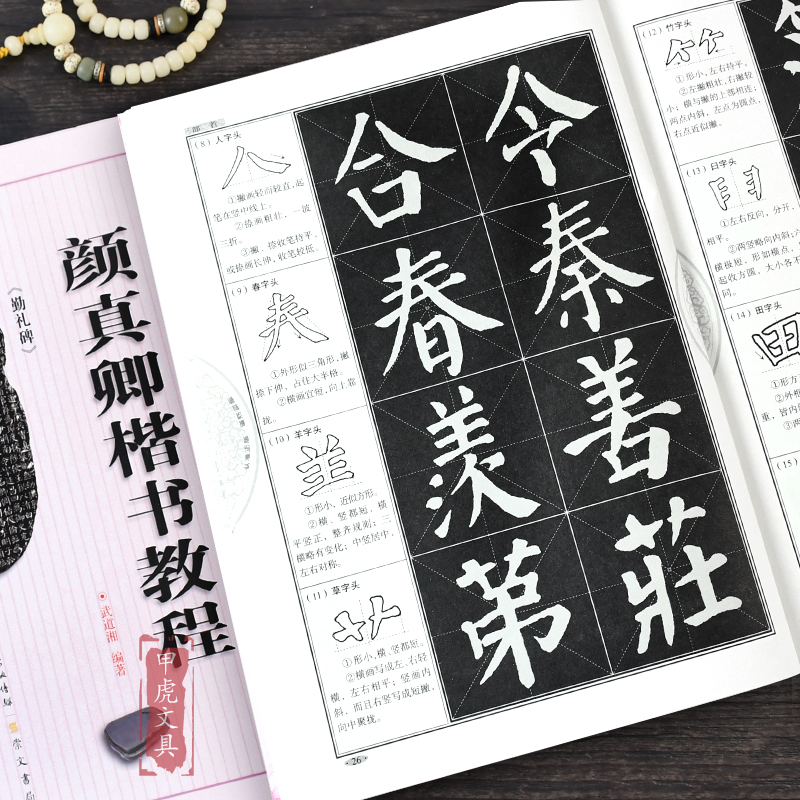 颜真卿楷书教程
《勤礼碑》
武道湘 编著
崇文书局
甲虎文具
部首
(8)人字头
①撇画轻而较直,起
笔在竖中线上。
②捺画粗壮,一波
三折。
③撇、捺收笔持平。
或捺画长伸,收笔较低。
(9)春字头
①外形似三角形,撇
捺下伸,占住大半格。
②横画宜短,向上靠
拢。
(10)羊字头
①形小,近似方形。
②横、竖都短,横
平竖正,整齐规则;三
横略有变化;中竖居中,
左右对称。
(11)草字头
①形小,横、竖都短。
②横画写成左、右轻
横,左右相平;竖画内
斜,而且右竖写成短撇,
向中聚拢。
合 今
春 秦
羡 善
第 莊
·26·
(12)竹字头
①形小,左右持平。
②左撇粗壮,右撇较
小;横与撇的上部相连;
两点内斜,左点为圆点,
右点近似撇。
(13)日字头
①左右反向,分开,
相平。
②两竖略向内斜;
横极短,形如横点,
起收方圆,大小各不
同。
(14)田字头
①形方
②外框
重,皆内
③两
(15)